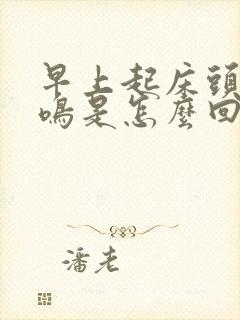 早上起床頭
鳴是怎麼回
潘老